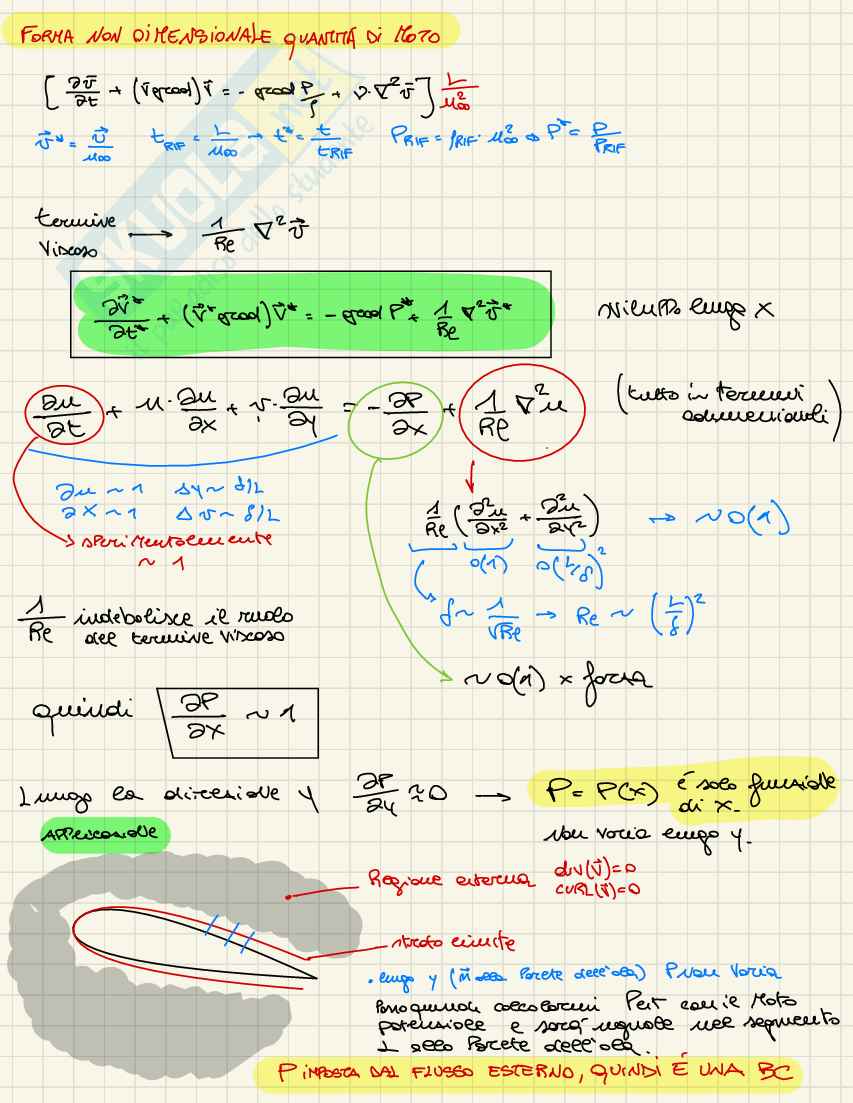 FORMA NON DIMENSIONALE QUANTITÁ DI MOTO
[ ∂v⃗/∂t + (v⃗ grad)v⃗ = - grad P/ρ + ν·∇²v⃗ ] L/u∞²
v⃗* = v⃗/u∞   t_RIF = L/u∞ → t* = t/t_RIF   P_RIF = ρ_RIF · u∞² ⇔ P* = P/P_RIF
termine viscoso → 1/Re ∇²v⃗
∂v⃗*/∂t* + (v⃗* grad)v⃗* = - grad P* + 1/Re ∇²v⃗*
sviluppo lungo x
∂u/∂t + u·∂u/∂x + v·∂u/∂y = -∂P/∂x + 1/Re ∇²u
(tutto in termini adimensionali)
∂u ~ 1   Δy ~ δ/L
∂x ~ 1   Δv ~ δ/L
sperimentalmente
~ 1
1/Re (∂²u/∂x² + ∂²u/∂y²) → ~ O(1)
O(1)   O(L/δ)²
δ ~ 1/√Re → Re ~ (L/δ)²
1/Re indebolisce il ruolo
del termine viscoso
~ O(1) x forza
quindi ∂P/∂x ~ 1
Lungo la direzione y   ∂P/∂y ≈ 0 → P = P(x) é solo funzione
di x.
non varia lungo y.
APPLICAZIONE
Regione esterna   div(v⃗)=0
CURL(v⃗)=0
strato limite
• lungo y (n⃗ alla parete dell'ala) P non varia
Posso quindi calcolarmi Pest con il moto
potenziale e sará uguale nel segmento
⊥ alla parete dell'ala.
P IMPOSTA DAL FLUSSO ESTERNO, QUINDI É UNA BC